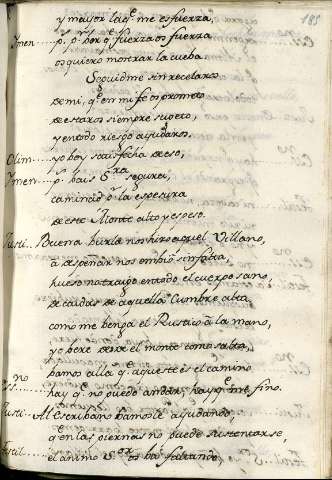 185
y mayor la q.e me esfuerza,
Ymen.... p.o por q.e fuerza os fuerza
os quiero mostrar la cueba
Seguidme sin recelaros
de mi, q.e en mi fe os prometo
de estaros siempre sugeto,
y en todo riesgo ayudaros.
Olim..... yo boy satisfecha de eso,
Ymen..... p.o bais S.ra segura,
caminad a la espesura
de este Monte alto y espeso.
Justi.. Buena burla nos hizo aquel Villano,
a despeñar nos embió sin falta,
hueso no traigo en todo el cuerpo sano,
de caidas de aquella Cumbre alta
como me benga el Rustico a la mano,
yo bere desde el monte como salta,
bamos alla q.e aqueste es el camino
Es.no hay q.e no puedo andar, hay q.e me fino.
Justi.. Al Escribano bamosle ayudando,
q.e en las piernas no puede sustentarse,
el animo S.or os ba faltando